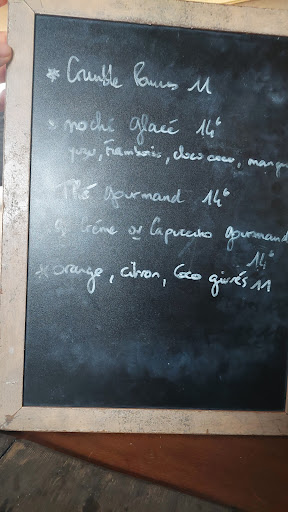 * Crumble Poires 11
* mochi glacé 14€
yuzu, framboise, choco coco, mangue
Thé gourmand 14€
Crème ou Capuccino gourmand
14€
* orange, citron, Coco givrés 11